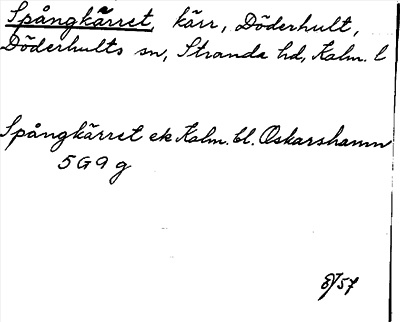 Spångkärret, kärr, Döderhult,
Döderhults sn, Stranda hd, Kalm. l
Spångkärret ek Kalm. bl. Oskarshamn
5G9g
/57